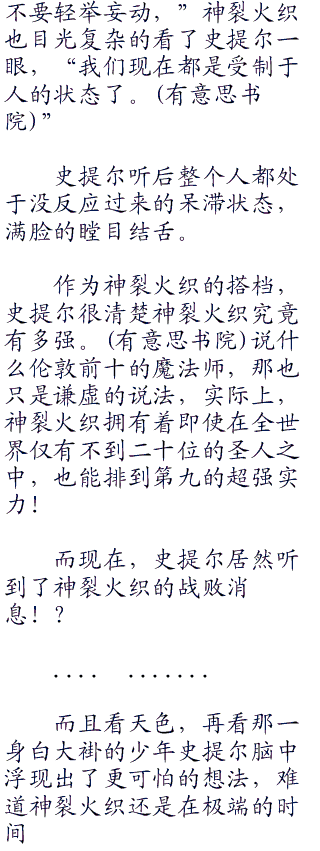 不要轻举妄动，”神裂火织
也目光复杂的看了史提尔一
眼，“我们现在都是受制于
人的状态了。(有意思书
院)”
史提尔听后整个人都处
于没反应过来的呆滞状态，
满脸的瞠目结舌。
作为神裂火织的搭档，
史提尔很清楚神裂火织究竟
有多强。(有意思书院)说什
么伦敦前十的魔法师，那也
只是谦虚的说法，实际上，
神裂火织拥有着即使在全世
界仅有不到二十位的圣人之
中，也能排到第九的超强实
力！
而现在，史提尔居然听
到了神裂火织的战败消
息！？
.... .......
而且看天色，再看那一
身白大褂的少年史提尔脑中
浮现出了更可怕的想法，难
道神裂火织还是在极端的时
间